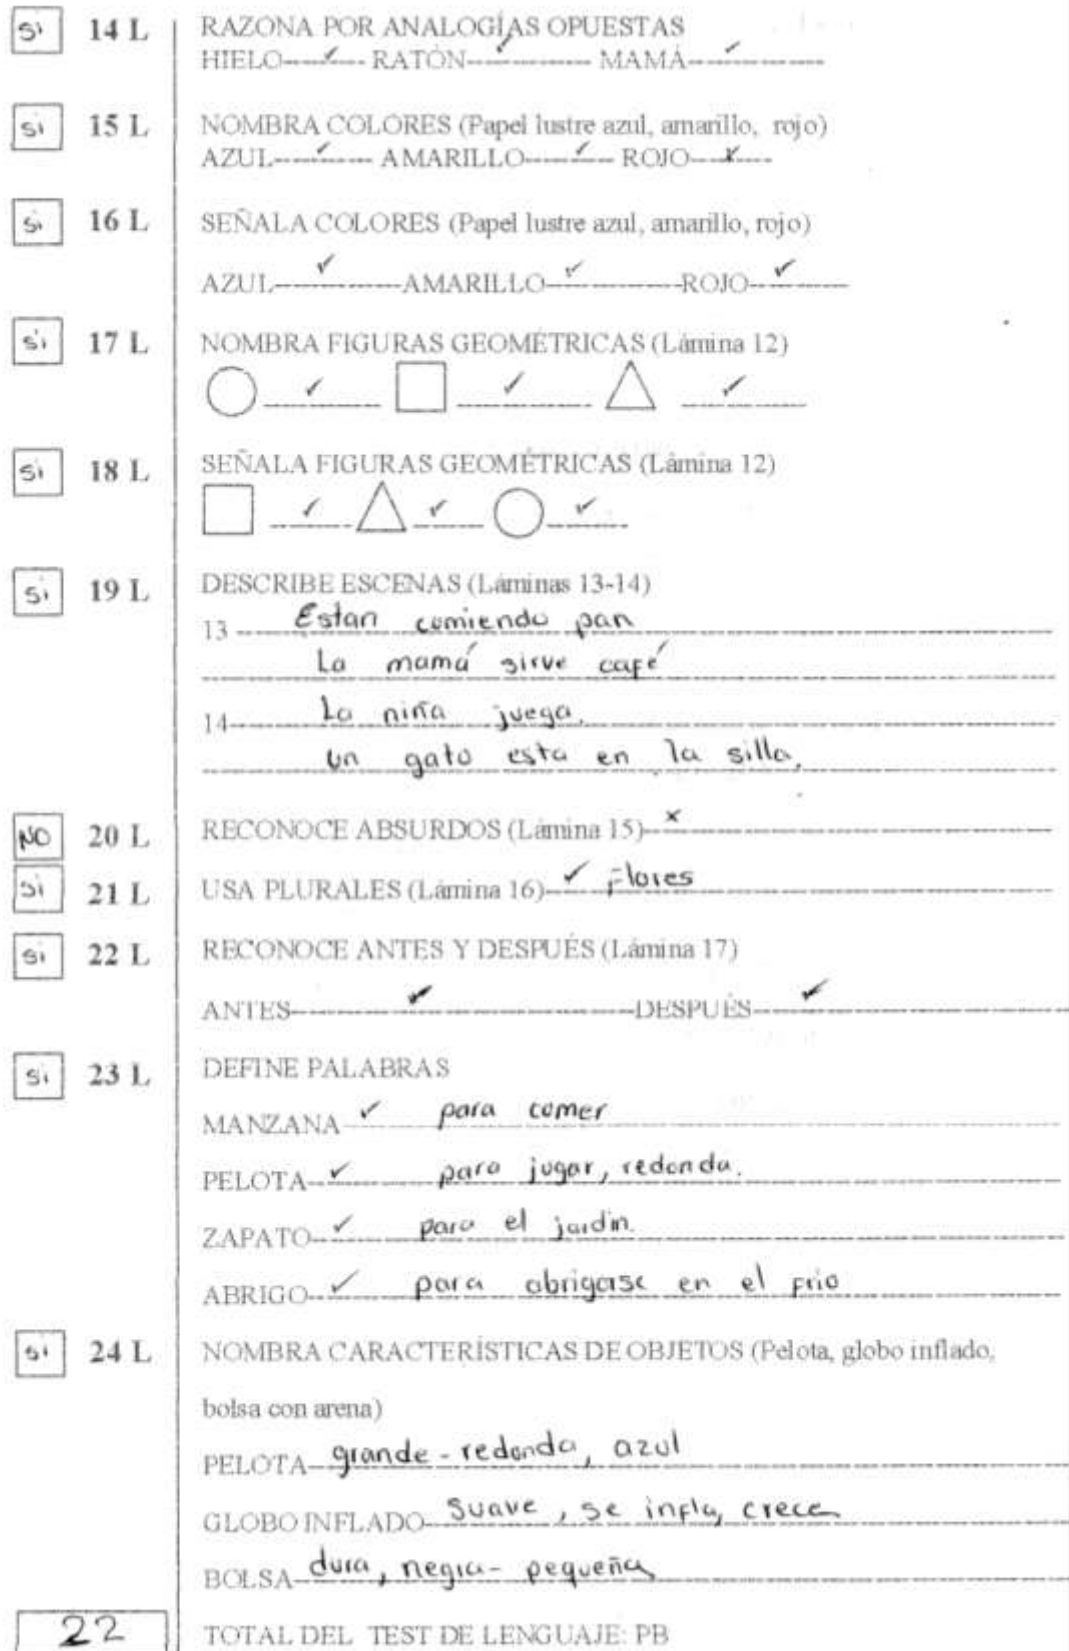 Si 14 L RAZONA POR ANALOGÍAS OPUESTAS
HIELO----✓---- RATÓN----✓---------- MAMÁ----✓----------
Si 15 L NOMBRA COLORES (Papel lustre azul, amarillo, rojo)
AZUL----✓---- AMARILLO-----✓--- ROJO---x----
Si 16 L SEÑALA COLORES (Papel lustre azul, amarillo, rojo)
AZUL----✓--------AMARILLO--✓----------ROJO---✓------
Si 17 L NOMBRA FIGURAS GEOMÉTRICAS (Lámina 12)
✓ ✓ ✓
Si 18 L SEÑALA FIGURAS GEOMÉTRICAS (Lámina 12)
✓ ✓ ✓
Si 19 L DESCRIBE ESCENAS (Láminas 13-14)
13 Estan comiendo pan
La mamá sirve café
14 La niña juega.
un gato esta en la silla.
NO 20 L RECONOCE ABSURDOS (Lámina 15) x
Si 21 L USA PLURALES (Lámina 16) ✓ Flores
Si 22 L RECONOCE ANTES Y DESPUÉS (Lámina 17)
ANTES ✓ DESPUÉS ✓
Si 23 L DEFINE PALABRAS
MANZANA ✓ para comer
PELOTA ✓ para jugar, redonda.
ZAPATO ✓ para el jardin.
ABRIGO ✓ para abrigarse en el frio
Si 24 L NOMBRA CARACTERÍSTICAS DE OBJETOS (Pelota, globo inflado,
bolsa con arena)
PELOTA grande - redonda, azul
GLOBO INFLADO Suave, se infla, crece
BOLSA dura, negra - pequeña
22 TOTAL DEL TEST DE LENGUAJE: PB